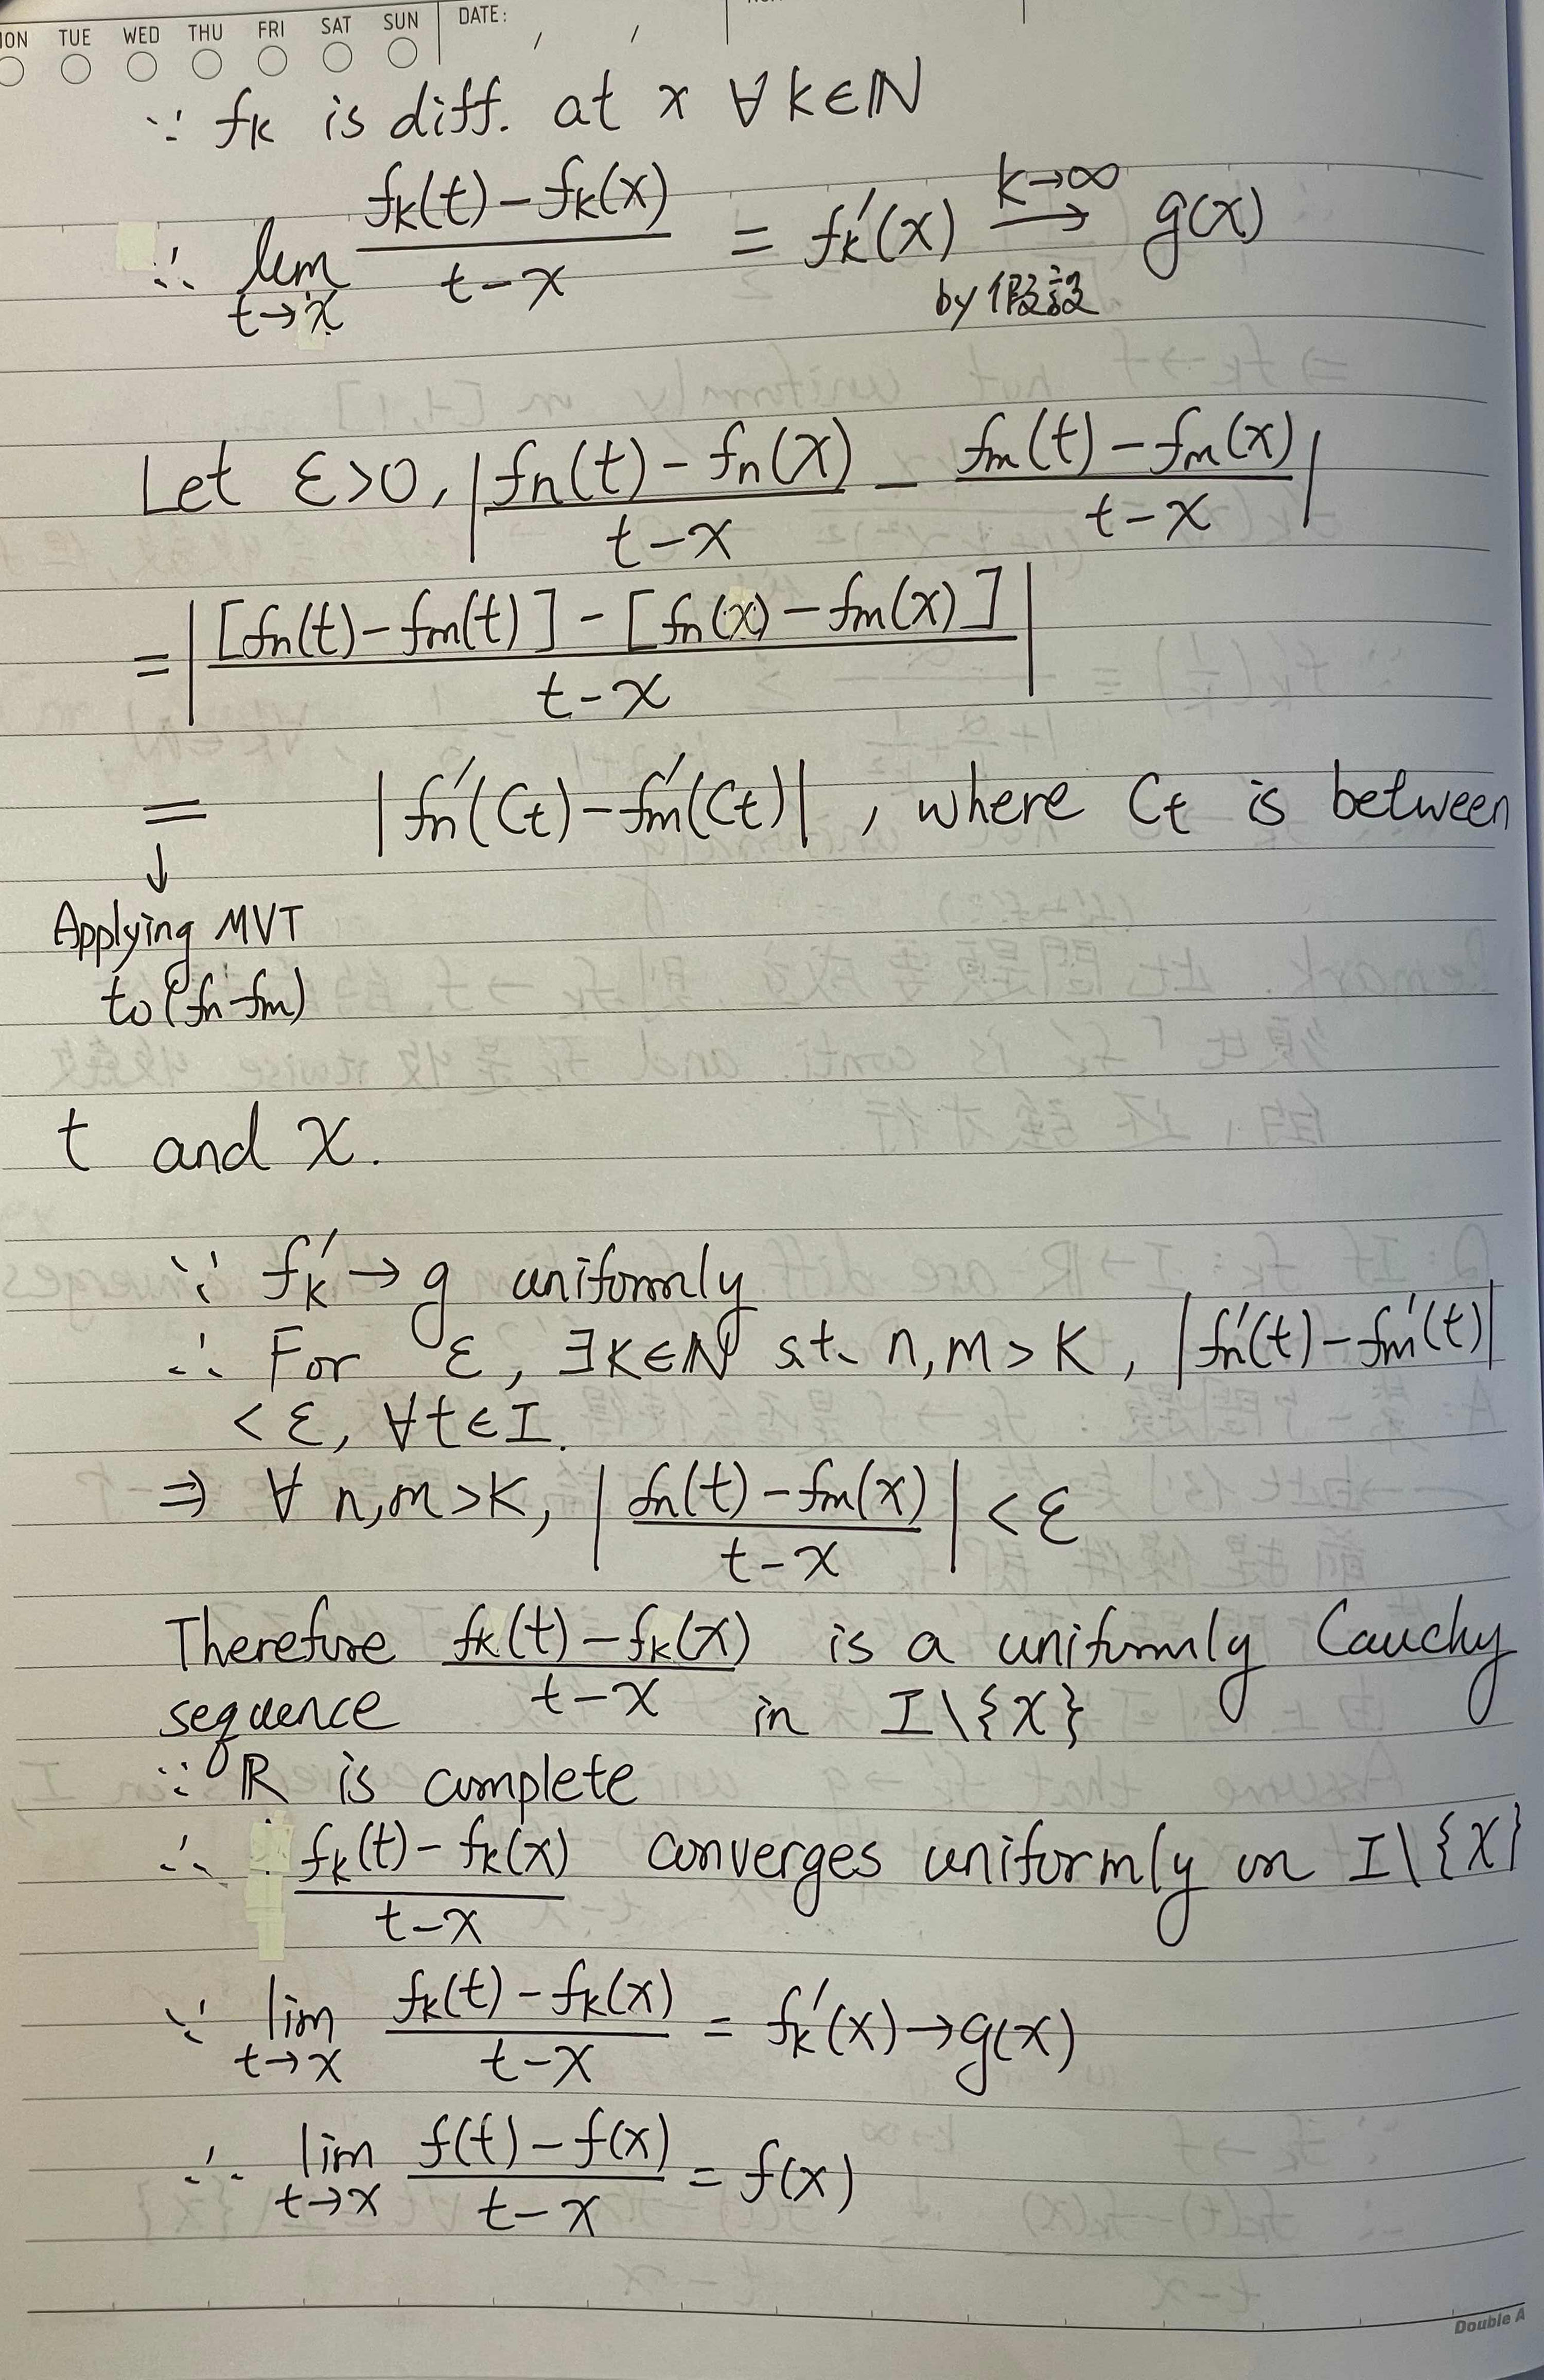 MON TUE WED THU FRI SAT SUN DATE: / /
∵ fk is diff. at x ∀k∈ℕ
∴ lim t→x (fk(t)-fk(x))/(t-x) = fk'(x) k→∞ → g(x)
by 假設
Let ε>0, |(fn(t)-fn(x))/(t-x) - (fm(t)-fm(x))/(t-x)|
=|([fn(t)-fm(t)]-[fn(x)-fm(x)])/(t-x)|
= |fn'(Ct)-fm'(Ct)|, where Ct is between
↓
Applying MVT
to (fn-fm)
t and x.
∵ fk'→g uniformly
∴ For ε, ∃K∈ℕ s.t. n,m>K, |fn'(t)-fm'(t)|
<ε, ∀t∈I.
⇒ ∀ n,m>K, |(fn(t)-fm(x))/(t-x)|<ε
Therefore (fk(t)-fk(x))/(t-x) is a uniformly Cauchy
sequence in I\{x}
∵ ℝ is complete
∴ (fk(t)-fk(x))/(t-x) converges uniformly on I\{x}
∵ lim t→x (fk(t)-fk(x))/(t-x) = fk'(x)→g(x)
∴ lim t→x (f(t)-f(x))/(t-x) = f(x)
Double A